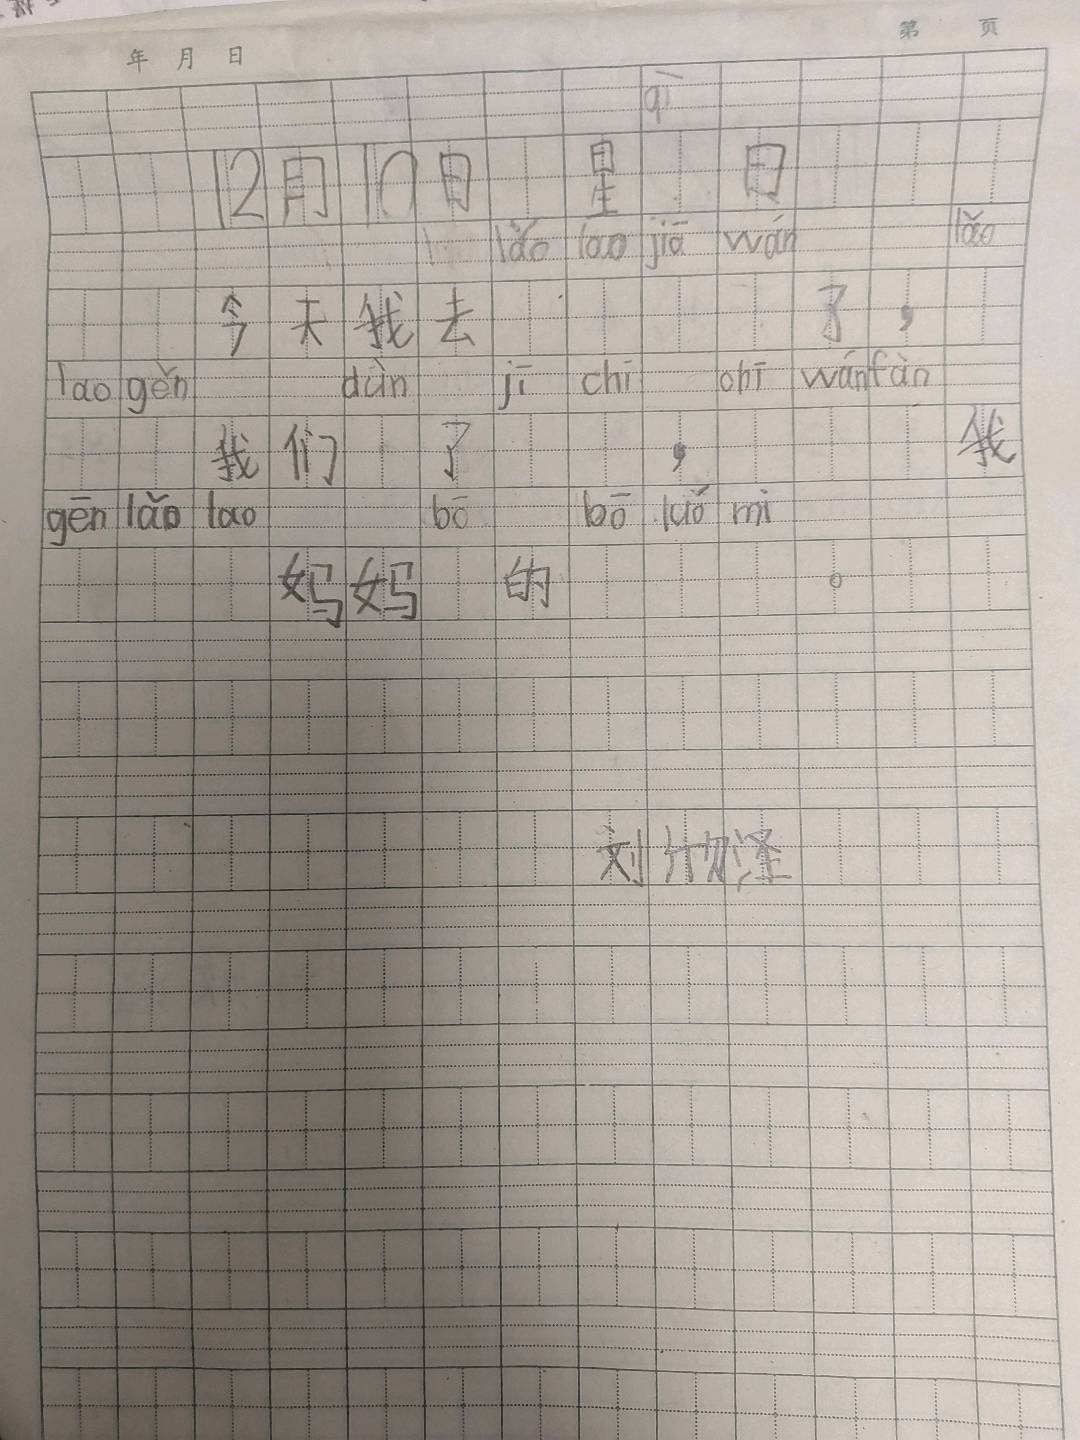 第 页
年 月 日
qī
12月10日 星 日
lǎo lao jiā wán lǎo
今天我去 了，
lao gěn dùn jī chī chī wánfàn
我们 了 ， 我
gēn lǎo lao bō bō luó mì
妈妈 的 。
刘 泽